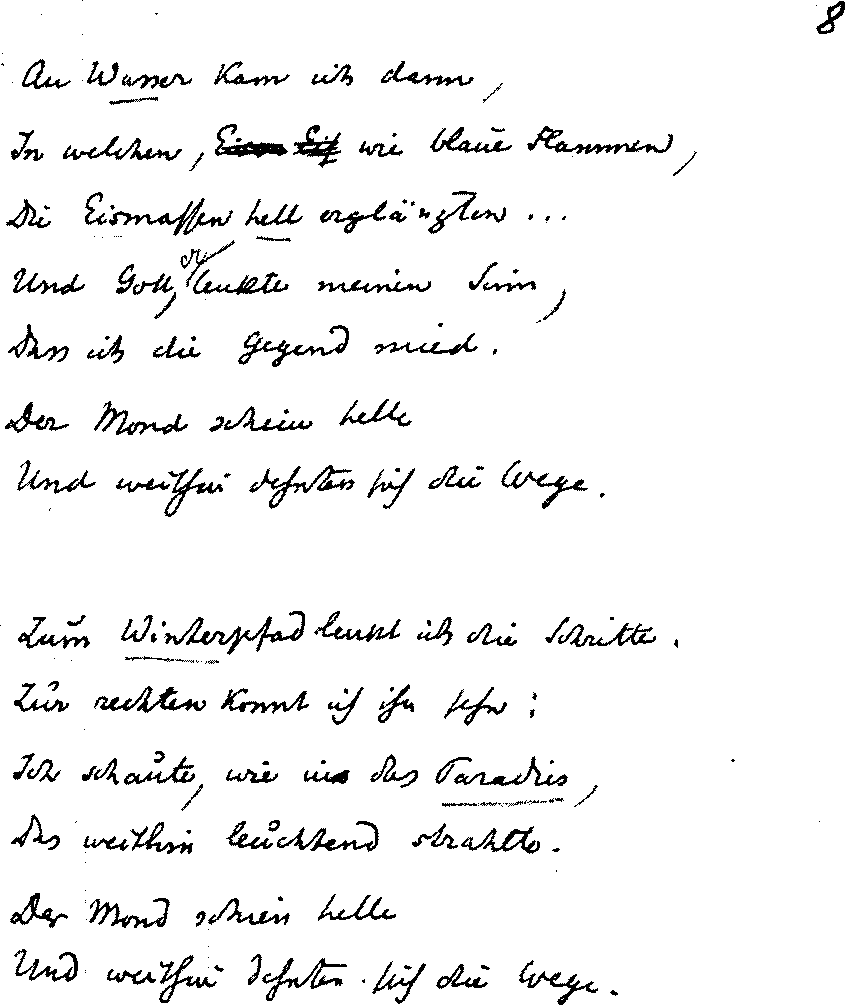 8
An Wasser kam ich dann,
In welchen, wie blaue Flammen,
Die Eismassen hell erglänzten ...
Und Gott, er lenkte meinen Sinn,
Dass ich die Gegend mied.
Der Mond schien helle
Und weithin dehnten sich die Wege.
Zum Winterpfad lenkt ich die Schritte.
Zur rechten konnt ich ihn sehn;
Ich schaute, wie in das Paradies,
Das weithin leuchtend strahlte.
Der Mond schien helle
Und weithin dehnten sich die Wege.